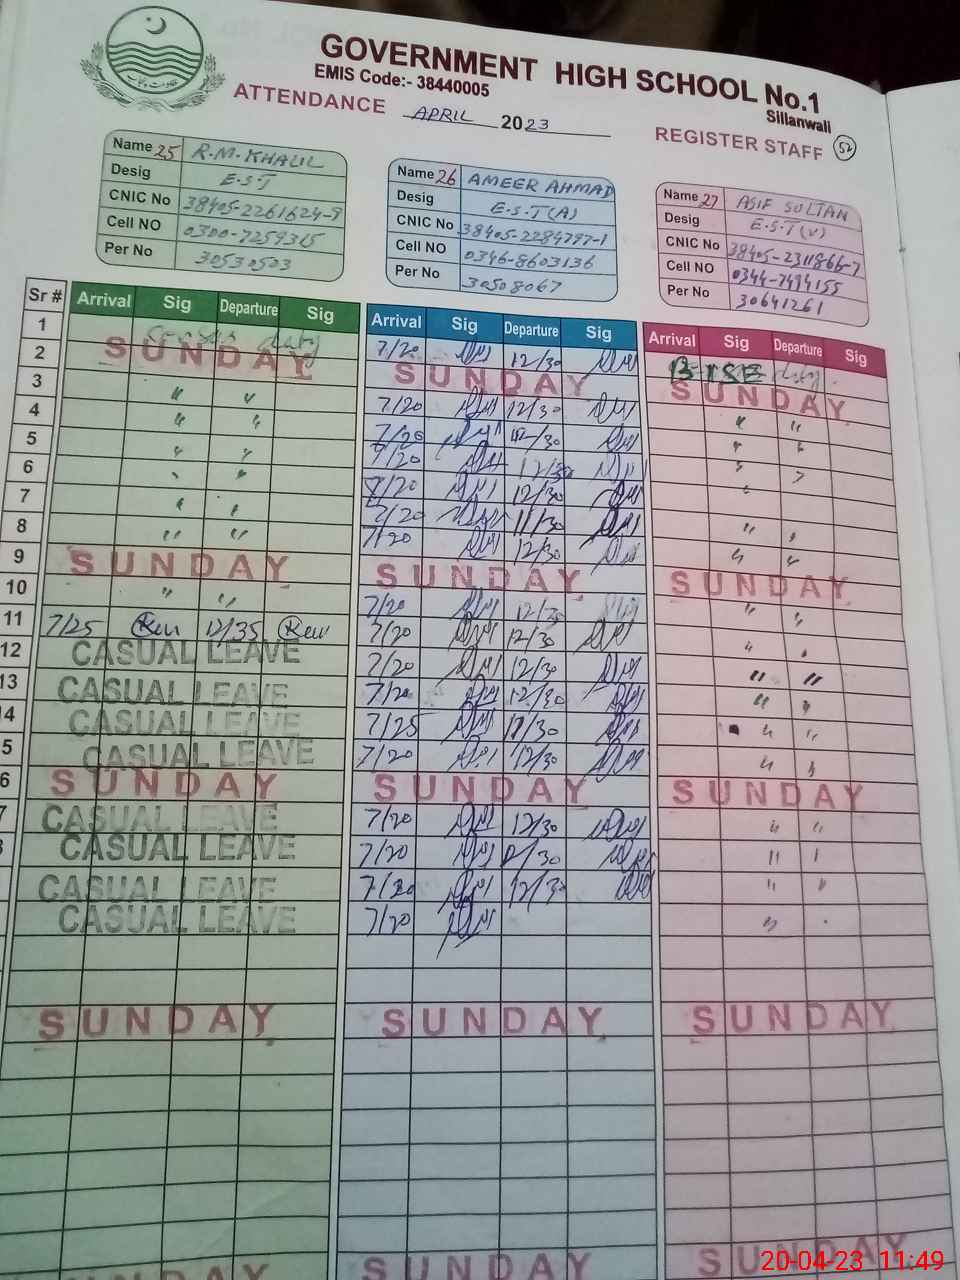 GOVERNMENT HIGH SCHOOL No.1
EMIS Code:- 38440005
Sillanwali
ATTENDANCE APRIL 2023
REGISTER STAFF 52
Name 25 R.M. KHALIL
Desig E.S.T
CNIC No 38405-2261624-9
Cell NO 0300-7259315
Per No 30530503
Name 26 AMEER AHMAD
Desig E.S.T(A)
CNIC No 38405-2284797-1
Cell NO 0346-8603136
Per No 30508067
Name 27 ASIF SULTAN
Desig E.S.T(V)
CNIC No 38405-2311866-7
Cell NO 0344-7494155
Per No 30641261
Sr # Arrival Sig Departure Sig Arrival Sig Departure Sig Arrival Sig Departure Sig
1 duty 7/20 12/30 BISE duty
2 SUNDAY SUNDAY SUNDAY
3 " " 7/20 12/30 " "
4 " " 7/20 12/30 " "
5 " " 7/20 12/30 " "
6 " " 7/20 12/30 "
7 " " 7/20 11/30 " "
8 " " 7/20 12/30 " "
9 SUNDAY SUNDAY SUNDAY
10 " " 7/20 12/30 " "
11 7/25 12/35 7/20 12/30 " "
12 CASUAL LEAVE 7/20 12/30 " "
13 CASUAL LEAVE 7/20 12/30 " "
14 CASUAL LEAVE 7/25 11/30 " "
5 CASUAL LEAVE 7/20 12/30 " "
6 SUNDAY SUNDAY SUNDAY
7 CASUAL LEAVE 7/20 12/30 " "
CASUAL LEAVE 7/20 12/30 " "
CASUAL LEAVE 7/20 12/30 " "
CASUAL LEAVE 7/20 "
SUNDAY SUNDAY SUNDAY
SUNDAY SUNDAY SUNDAY
20-04-23 11:49